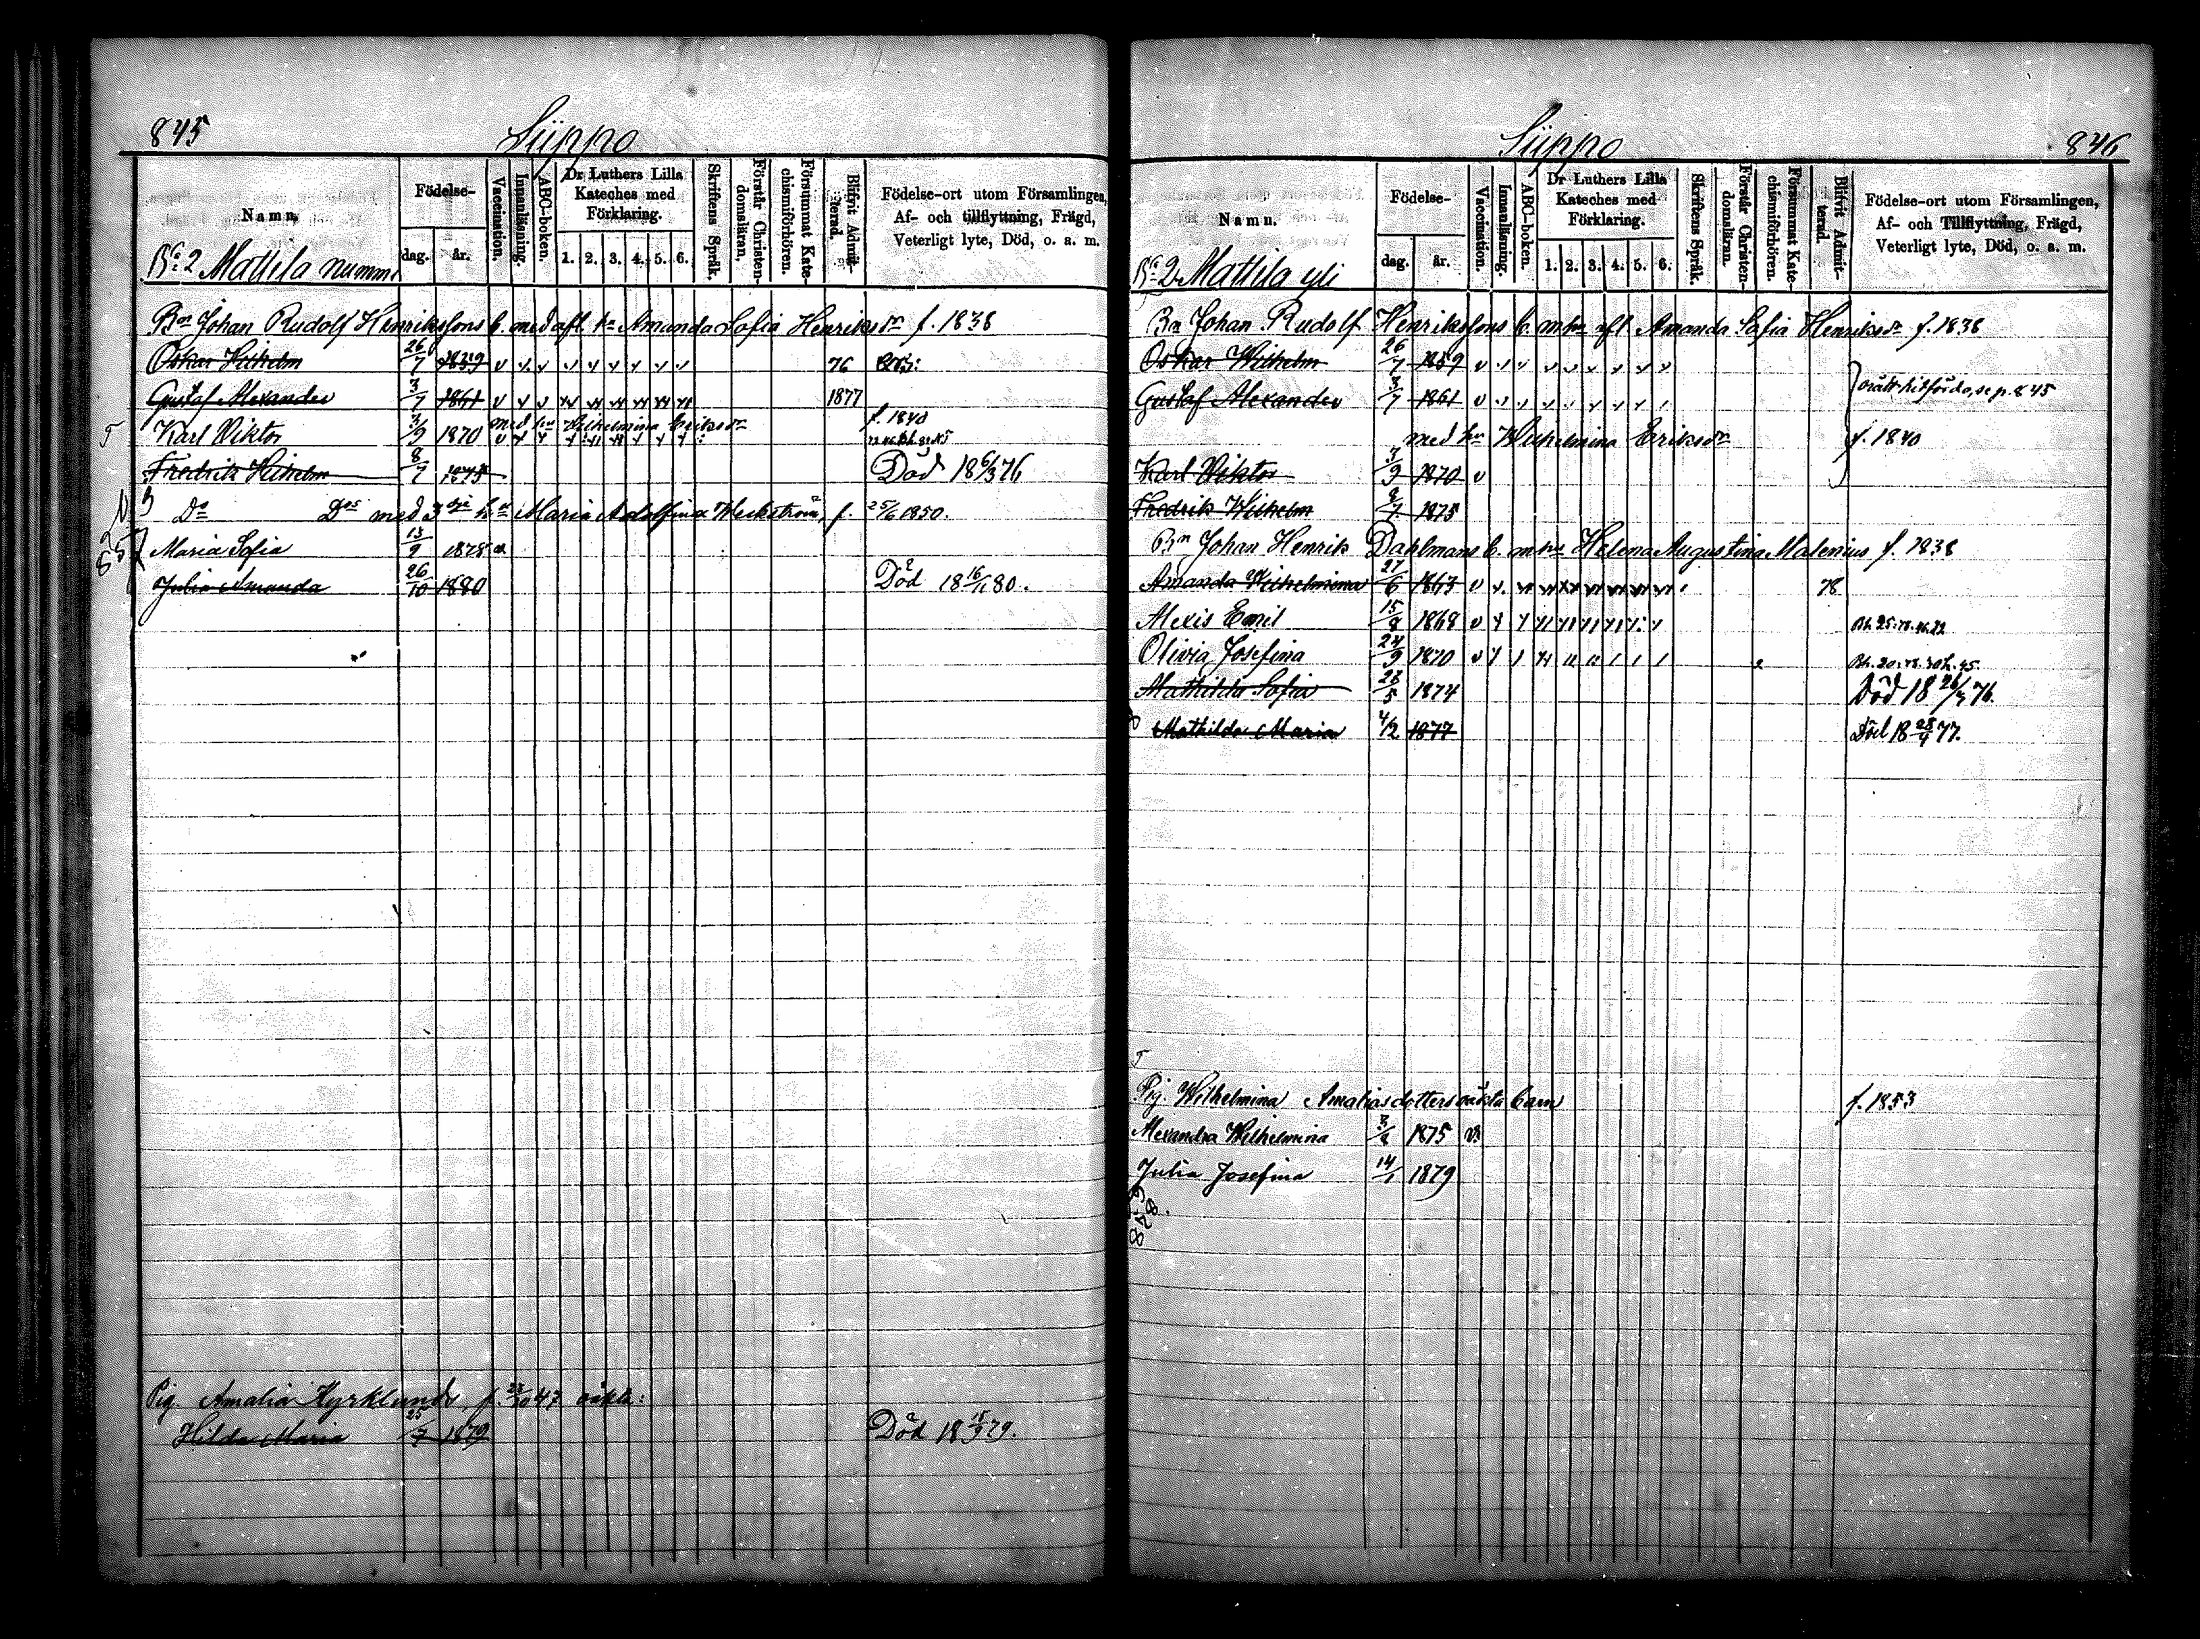 845
Siippo
Namn.
Födelse-
dag.
år.
Vaccination.
Innanläsning.
ABC-boken.
Dr Luthers Lilla
Kateches med
Förklaring.
1. 2. 3. 4. 5. 6.
Skriftens Språk.
Förstår Christen-
domsläran.
Försummat Kate-
chismiförhören.
Blifvit Admit-
terad.
Födelse-ort utom Församlingen,
Af- och tillflyttning, Frägd,
Veterligt lyte, Död, o. a. m.
No 2 Mattila nummi
Bn Johan Rudolf Henrikssons b. med afl. hu Amanda Sofia Henriksdr f. 1838
Oskar Wilhelm 26/7 1859 76
Gustaf Alexander 3/7 1861 1877
med hu Wilhelmina Eriksdr f. 1840
Karl Viktor 3/9 1870
Fredrik Wilhelm 8/7 1875 Död 18 6/3 76
Do Dos med 3dje hu Maria Adolfina Weckström, f. 25/6 1850.
Maria Sofia 13/9 1878
Julia Amanda 26/10 1880 Död 18 16/11 80.
857
Pig. Amalia Hyrklunds, f. 47 oäkta:
Hilda Maria 25/7 1879 Död 18 79.
Siippo
846
Namn.
Födelse-
dag.
år.
Vaccination.
Innanläsning.
ABC-boken.
Dr Luthers Lilla
Kateches med
Förklaring.
1. 2. 3. 4. 5. 6.
Skriftens Språk.
Förstår Christen-
domsläran.
Försummat Kate-
chismiförhören.
Blifvit Admit-
terad.
Födelse-ort utom Församlingen,
Af- och Tillflyttning, Frägd,
Veterligt lyte, Död, o. a. m.
No 2 Mattila yli
Bn Johan Rudolf Henrikssons b. m. hu afl. Amanda Sofia Henriksdr f. 1838
Oskar Wilhelm 26/7 1859
Gustaf Alexander 3/7 1861 orätt hitförda, se p. 845
med hu Wilhelmina Eriksdr f. 1840
Karl Viktor 3/9 1870
Fredrik Wilhelm 8/7 1875
Bn Johan Henrik Dahlmans b. m. hu Helena Augustina Malenius f. 1838
Amanda Wilhelmina 27/6 1863 78
Alexis Emil 15/8 1868
Olivia Josefina 24/9 1870
Mathilda Sofia 28/5 1874 Död 18 26/3 76.
Mathilda Maria 4/2 1877 Död 18 28/4 77.
Pig. Wilhelmina Amaliasdotters oäkta barn f. 1853
Alexandra Wilhelmina 1875
Julia Josefina 14/1 1879